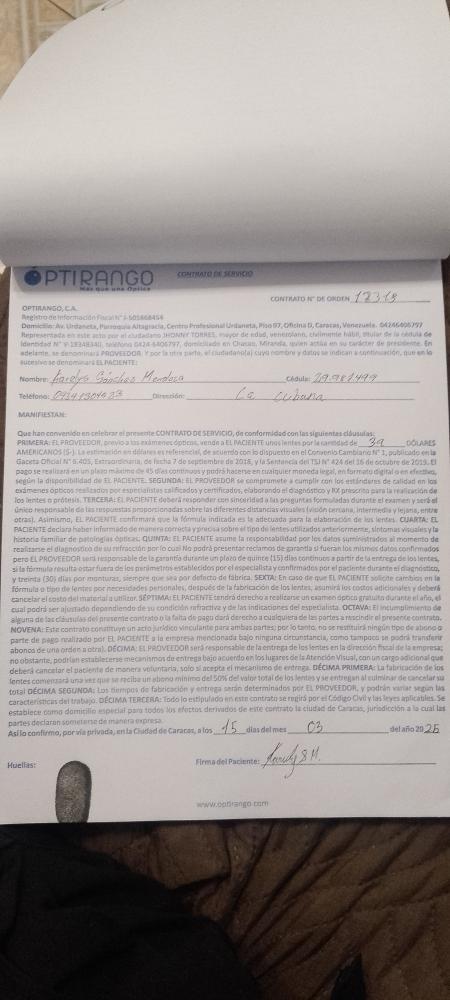 OPTIRANGO
Más que una Óptica
CONTRATO DE SERVICIO
CONTRATO N° DE ORDEN
OPTIRANGO, C.A.
Registro de Información Fiscal N° J-501868454
Domicilio: Av. Urdaneta, Parroquia Altagracia, Centro Profesional Urdaneta, Piso 07, Oficina D, Caracas, Venezuela. 04246406797
Representada en este acto por el ciudadano JHONNY TORRES, mayor de edad, venezolano, civilmente hábil, titular de la cédula de
Identidad N° V-19348340, teléfono 0424-6406797, domiciliado en Chacao, Miranda, quien actúa en su carácter de presidente. En
adelante, se denominará PROVEEDOR. Y por la otra parte, el ciudadano(a) cuyo nombre y datos se indican a continuación, que en lo
sucesivo se denominará EL PACIENTE:
Nombre: Karolys Sánchez Mendoza Cédula:
Teléfono: Dirección: La Cubana
MANIFIESTAN:
Que han convenido en celebrar el presente CONTRATO DE SERVICIO, de conformidad con las siguientes cláusulas:
PRIMERA: EL PROVEEDOR, previo a los exámenes ópticos, vende a EL PACIENTE unos lentes por la cantidad de 39 DÓLARES
AMERICANOS ($-). La estimación en dólares es referencial, de acuerdo con lo dispuesto en el Convenio Cambiario N° 1, publicado en la
Gaceta Oficial N° 6.405, Extraordinaria, de fecha 7 de septiembre de 2018, y la Sentencia del TSJ N° 424 del 16 de octubre de 2019. El
pago se realizará en un plazo máximo de 45 días continuos y podrá hacerse en cualquier moneda legal, en formato digital o en efectivo,
según la disponibilidad de EL PACIENTE. SEGUNDA: EL PROVEEDOR se compromete a cumplir con los estándares de calidad en los
exámenes ópticos realizados por especialistas calificados y certificados, elaborando el diagnóstico y RX prescrito para la realización de
los lentes o prótesis. TERCERA: EL PACIENTE deberá responder con sinceridad a las preguntas formuladas durante el examen y será el
único responsable de las respuestas proporcionadas sobre las diferentes distancias visuales (visión cercana, intermedia y lejana, entre
otras). Asimismo, EL PACIENTE confirmará que la fórmula indicada es la adecuada para la elaboración de los lentes. CUARTA: EL
PACIENTE declara haber informado de manera correcta y precisa sobre el tipo de lentes utilizados anteriormente, síntomas visuales y la
historia familiar de patologías ópticas. QUINTA: EL PACIENTE asume la responsabilidad por los datos suministrados al momento de
realizarse el diagnostico de su refracción por lo cual No podrá presentar reclamos de garantía si fueran los mismos datos confirmados
pero EL PROVEEDOR será responsable de la garantía durante un plazo de quince (15) días continuos a partir de la entrega de los lentes,
si la fórmula resulta estar fuera de los parámetros establecidos por el especialista y confirmados por el paciente durante el diagnóstico,
y treinta (30) días por monturas, siempre que sea por defecto de fábrica. SEXTA: En caso de que EL PACIENTE solicite cambios en la
fórmula o tipo de lentes por necesidades personales, después de la fabricación de los lentes, asumirá los costos adicionales y deberá
cancelar el costo del material a utilizar. SÉPTIMA: EL PACIENTE tendrá derecho a realizarse un examen óptico gratuito durante el año, el
cual podrá ser ajustado dependiendo de su condición refractiva y de las indicaciones del especialista. OCTAVA: El incumplimiento de
alguna de las cláusulas del presente contrato o la falta de pago dará derecho a cualquiera de las partes a rescindir el presente contrato.
NOVENA: Este contrato constituye un acto jurídico vinculante para ambas partes; por lo tanto, no se restituirá ningún tipo de abono o
parte de pago realizado por EL PACIENTE a la empresa mencionada bajo ninguna circunstancia, como tampoco se podrá transferir
abonos de una orden a otra). DÉCIMA: EL PROVEEDOR será responsable de la entrega de los lentes en la dirección fiscal de la empresa;
no obstante, podrían establecerse mecanismos de entrega bajo acuerdo en los lugares de la Atención Visual, con un cargo adicional que
deberá cancelar el paciente de manera voluntaria, solo si acepta el mecanismo de entrega. DÉCIMA PRIMERA: La fabricación de los
lentes comenzará una vez que se reciba un abono mínimo del 50% del valor total de los lentes y se entregan al culminar de cancelar su
total DÉCIMA SEGUNDA: Los tiempos de fabricación y entrega serán determinados por EL PROVEEDOR, y podrán variar según las
características del trabajo. DÉCIMA TERCERA: Todo lo estipulado en este contrato se regirá por el Código Civil y las leyes aplicables. Se
establece como domicilio especial para todos los efectos derivados de este contrato la ciudad de Caracas, jurisdicción a la cual las
partes declaran someterse de manera expresa.
Así lo confirmo, por vía privada, en la Ciudad de Caracas, a los 15 días del mes 03 del año 2025
Huellas: Firma del Paciente: Karolys S M.
www.optirango.com